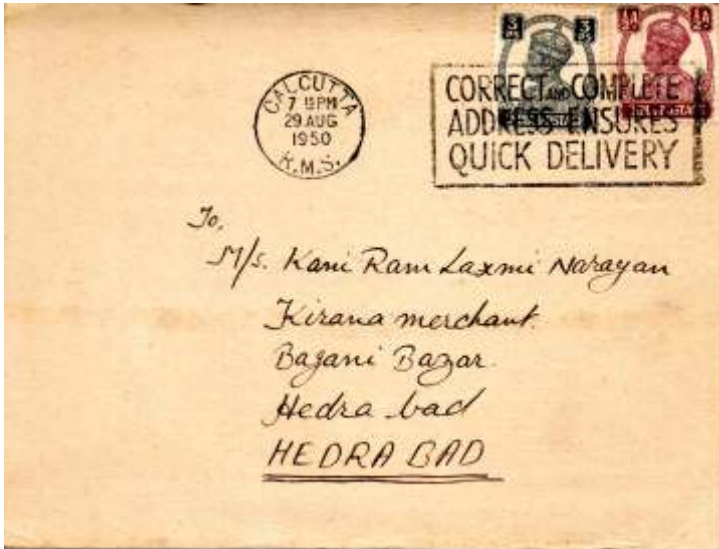 3 3
PS PS
½ ½
CALCUTTA
7 15PM
29 AUG
1950
R.M.S.
CORRECT AND COMPLETE
ADDRESS ENSURES
QUICK DELIVERY
To,
M/s. Kani Ram Laxmi Narayan
Kirana merchant.
Bagani Bazar.
Hedra bad
HEDRA BAD